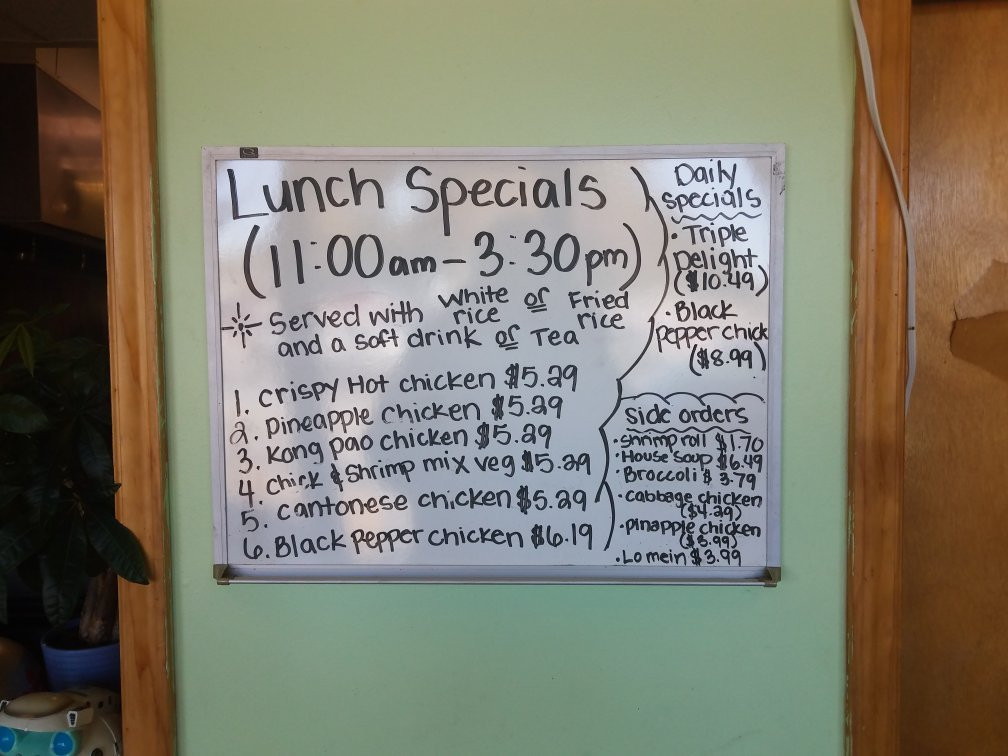 Lunch Specials
(11:00am - 3:30pm)
Served with White rice or Fried rice
and a soft drink or Tea
1. crispy Hot chicken $5.29
2. pineapple chicken $5.29
3. Kong pao chicken $5.29
4. chick & shrimp mix veg $5.29
5. cantonese chicken $5.29
6. Black pepper chicken $6.19
Daily
specials
• Triple
Delight
($10.49)
• Black
pepper chick
($8.99)
side orders
• shrimp roll $1.70
• House soup $6.49
• Broccoli $3.79
• cabbage chicken
($4.29)
• pinapple chicken
• Lo mein $3.99